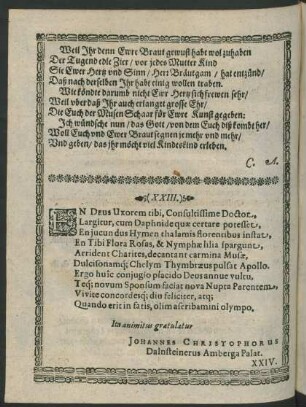 Weil Ihr denn Ewre Braut gewust habt wol zuhaben
Der Tugend edle Zier / vor jedes Mutter Kind
Sie Ewer Hertz und Sinn / Herr Bräutgam / hat entzünd /
Daß nach derselben Ihr habt einig wollen traben.
Wie köndte darumb nicht Eur Hertz sich frewen sehr /
Weil vber daß Ihr auch erlanget grosse Ehr /
Die Euch der Musen Schaar für Ewre Kunst gegeben:
Ich wündsche nun / das Gott / von dem Euch diß kombt her /
Woll Euch vnd Ewer Braut segnen je mehr vnd mehr /
Vnd geben / das jhr möcht viel Kindeskind erleben.
C. A.
(XXIII.)
EN Deus Uxorem tibi, Consultissime Doctor,
Largitur, cum Daphnide quæ certare potesset,
En jucundus Hymen thalamis florentibus instat,
En Tibi Flora Rosas, & Nymphæ lilia spargunt,
Arrident Charites, decantant carmina Musæ,
Dulcisonamq; Chelym Thymbræus pulsat Apollo.
Ergo huic conjugio placido Deus annue vultu,
Teq; novum Sponsum faciat nova Nupta Parentem,
Vivite concordesq; diu feliciter, atq;
Quando erit in fatis, olim ascribamini olympo.
Ita animitus gratulatur
JOHANNES CHRISTOPHORUS
Dalnsteinerus Amberga Palat.
XXIV.